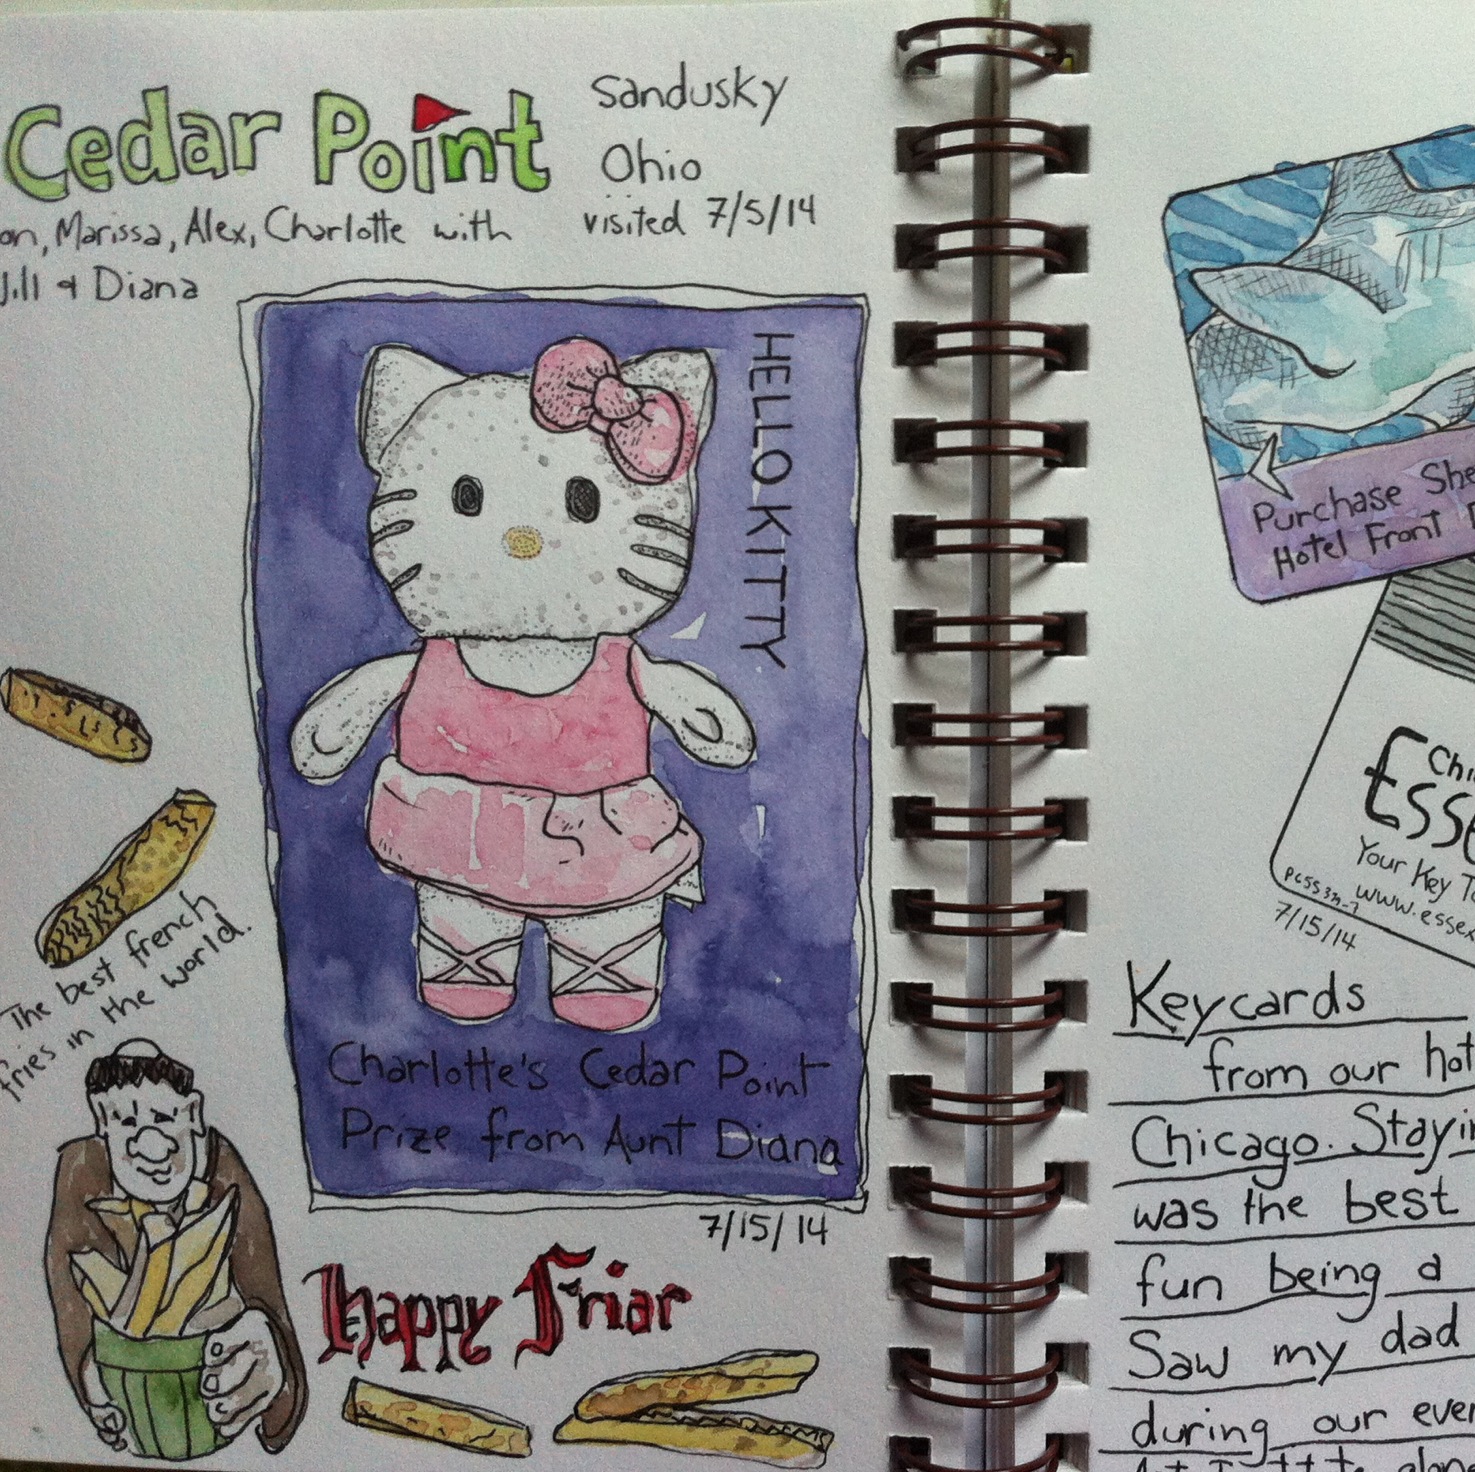 Cedar Point
Sandusky
Ohio
visited 7/5/14
on, Marissa, Alex, Charlotte with
Jill & Diana
HELLO KITTY
Charlotte's Cedar Point
Prize from Aunt Diana
7/15/14
The best french
fries in the world.
Happy Friar
Purchase She
Hotel Front
Chi
Esse
Your Key T
www.essex
7/15/14
Keycards
from our hot
Chicago. Stayin
was the best
fun being a
Saw my dad
during our even